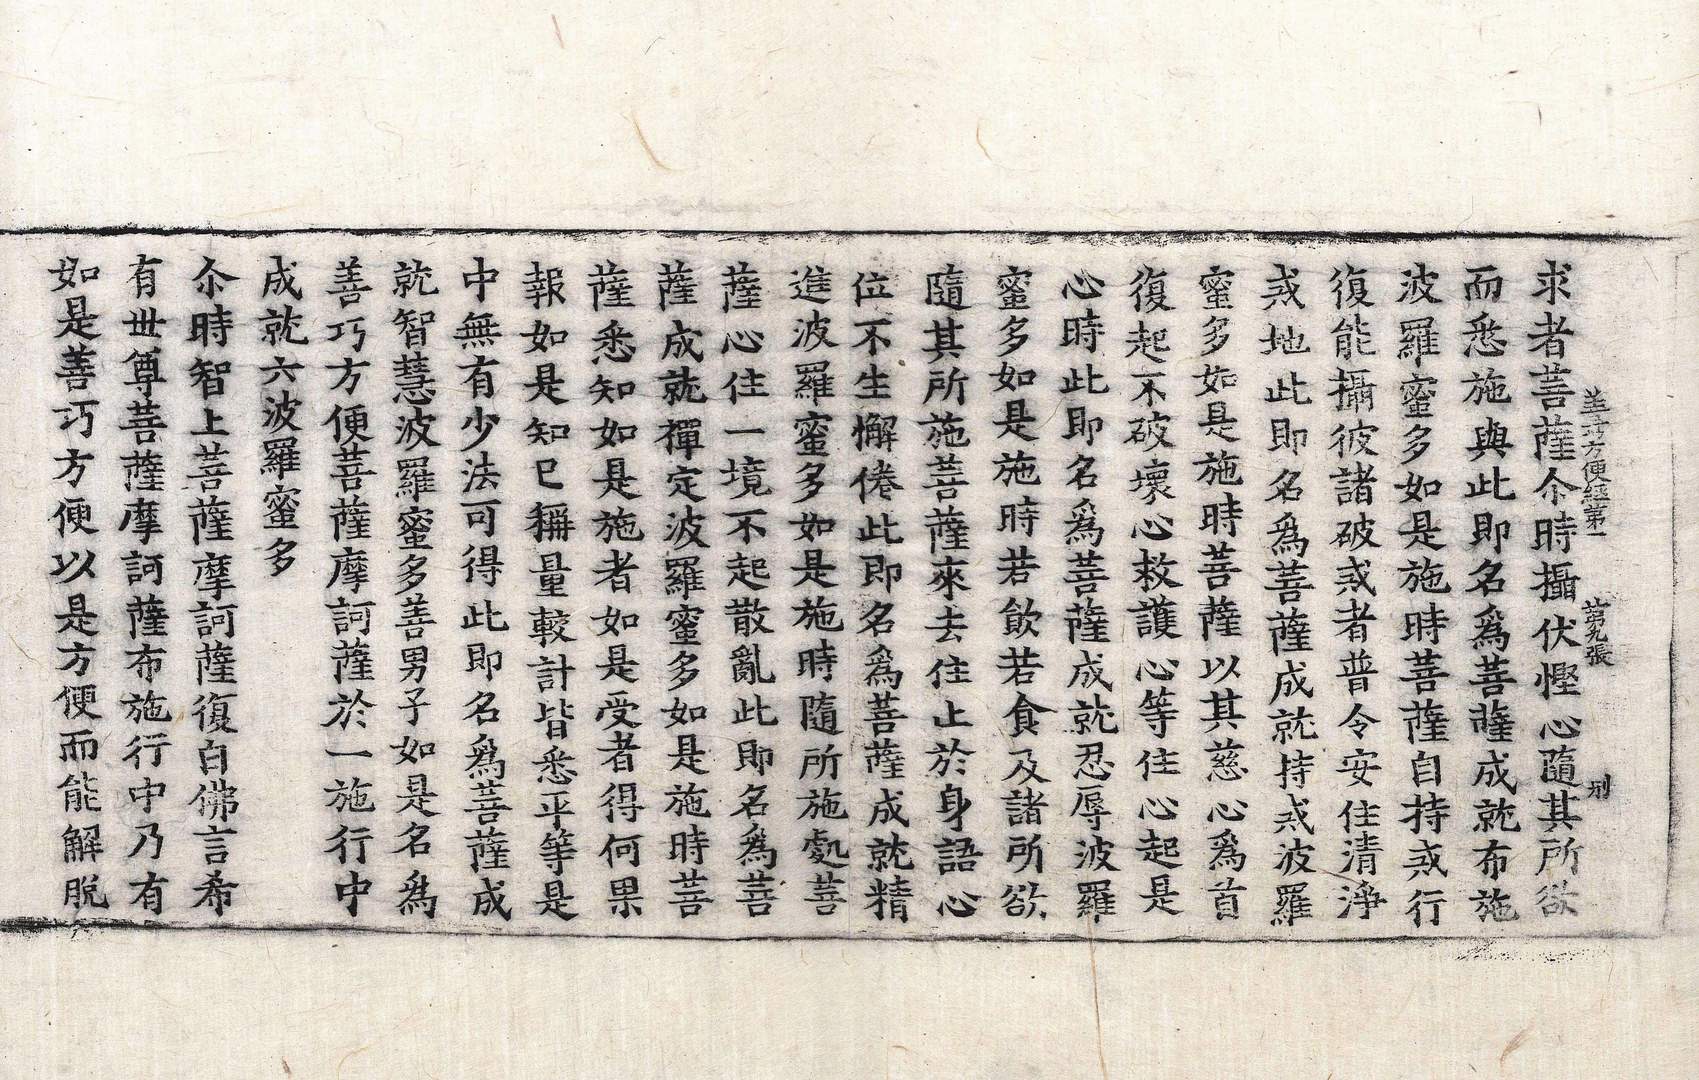 求者菩薩尒時攝伏慳心隨其所欲
善巧方便經第一 第九張 刑
而悉施與此即名爲菩薩成就布施
波羅蜜多如是施時菩薩自持戒行
復能攝彼諸破戒者普令安住清淨
戒地此即名爲菩薩成就持戒波羅
蜜多如是施時菩薩以其慈心爲首
復起不破壞心救護心等住心起是
心時此即名爲菩薩成就忍辱波羅
蜜多如是施時若飲若食及諸所欲
隨其所施菩薩來去住止於身語心
位不生懈倦此即名爲菩薩成就精
進波羅蜜多如是施時隨所施處菩
薩心住一境不起散亂此即名爲菩
薩成就禪定波羅蜜多如是施時菩
薩悉知如是施者如是受者得何果
報如是知已稱量較計皆悉平等是
中無有少法可得此即名爲菩薩成
就智慧波羅蜜多善男子如是名爲
善巧方便菩薩摩訶薩於一施行中
成就六波羅蜜多
尒時智上菩薩摩訶薩復白佛言希
有世尊菩薩摩訶薩布施行中乃有
如是善巧方便以是方便而能解脫